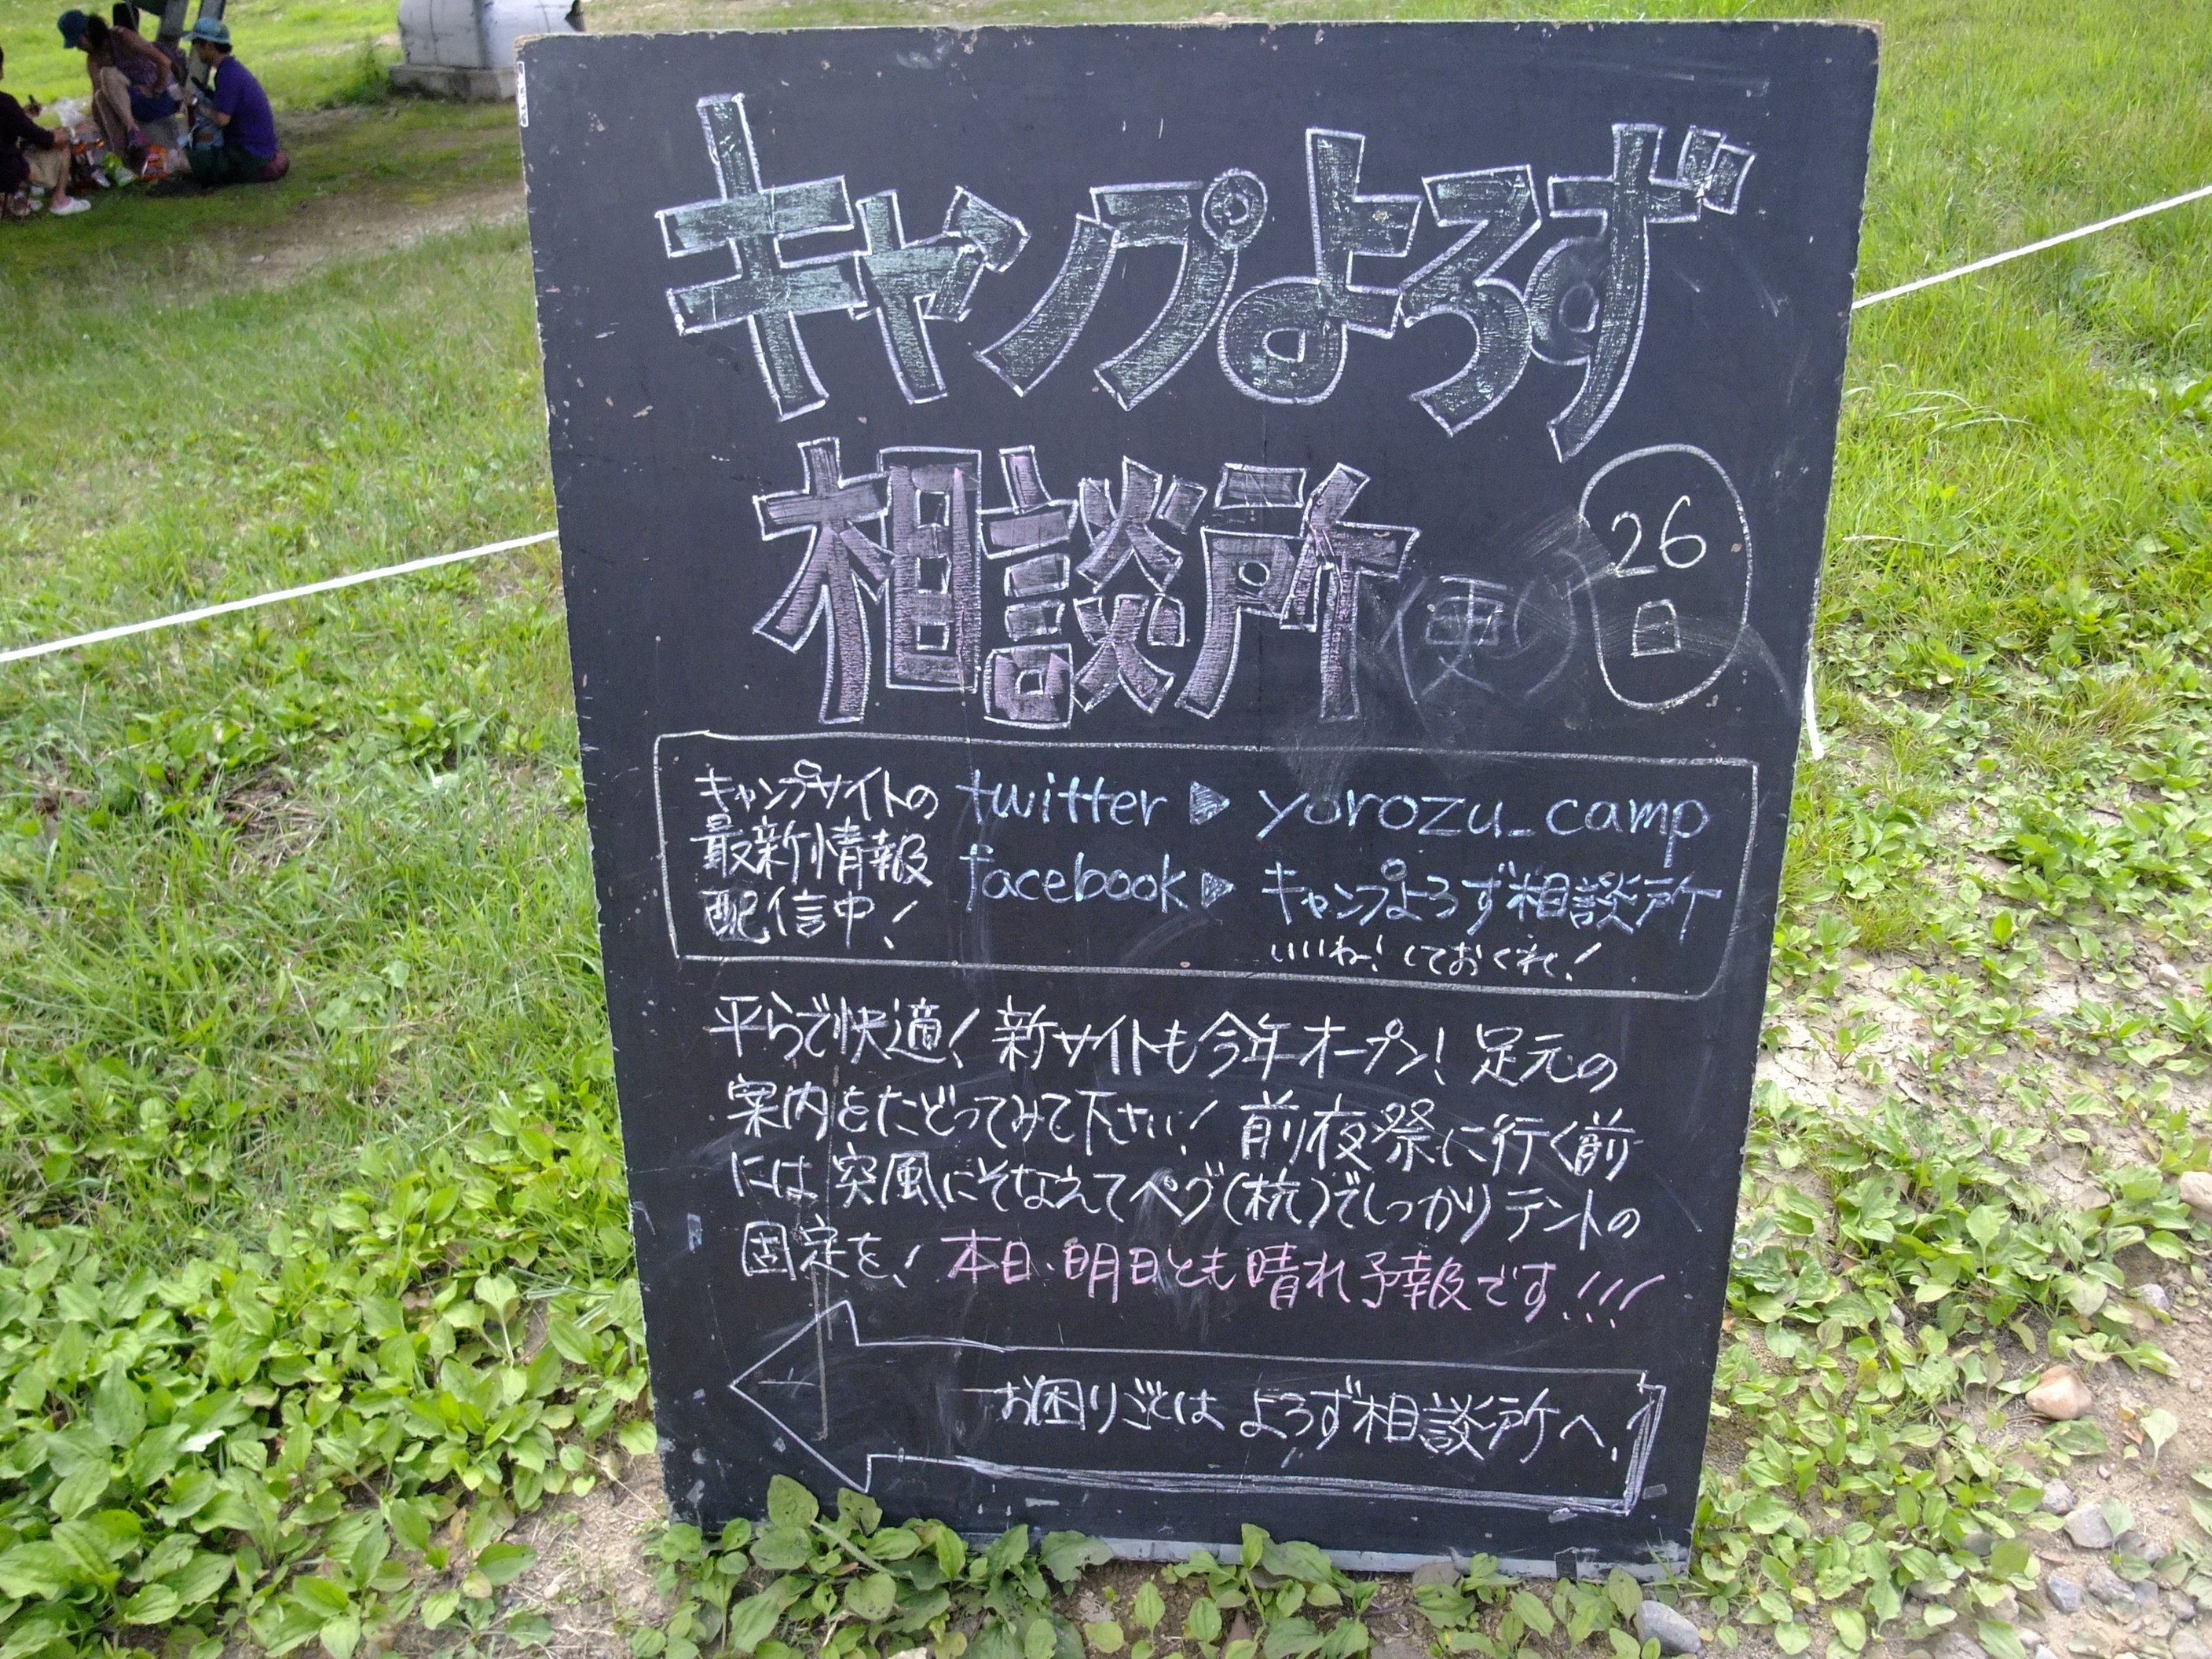 キャンプよろず
相談所
26
日
キャンプサイトの
最新情報
配信中!
twitter ▶ yorozu_camp
facebook ▶ キャンプよろず相談所
いいね!しておくれ!
平らで快適!新サイトも今年オープン!足元の
案内をたどってみて下さい!前夜祭に行く前
には突風にそなえてペグ(杭)でしっかりテントの
固定を!本日・明日とも晴れ予報です!!!
お困りごとは よろず相談所へ!